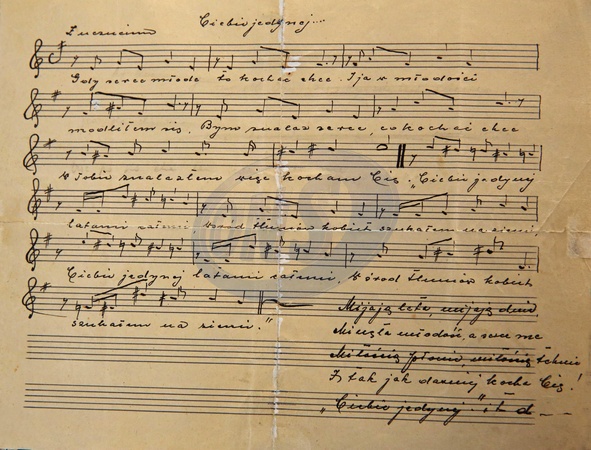 Ciebie jedynej....
Z uczuciem
Gdy serce młode to kochać chce. I ja w młodości
modliłem się. Bym znalazł serce, co kochać chce
W Tobie znalazłem więc kocham Cię. "Ciebie jedynej
latami całemi wśród tłumów kobiet szukałem na ziemi,
Ciebie jedynej latami całemi, Wśród tłumów kobiet
szukałem na ziemi."
Mijają lata, mijają dnie,
Minęła młodość, a serce me
Miłością płonie, miłością tchnie
I tak jak dawniej kocha Cię!
„Ciebie jedynej" i t d - -